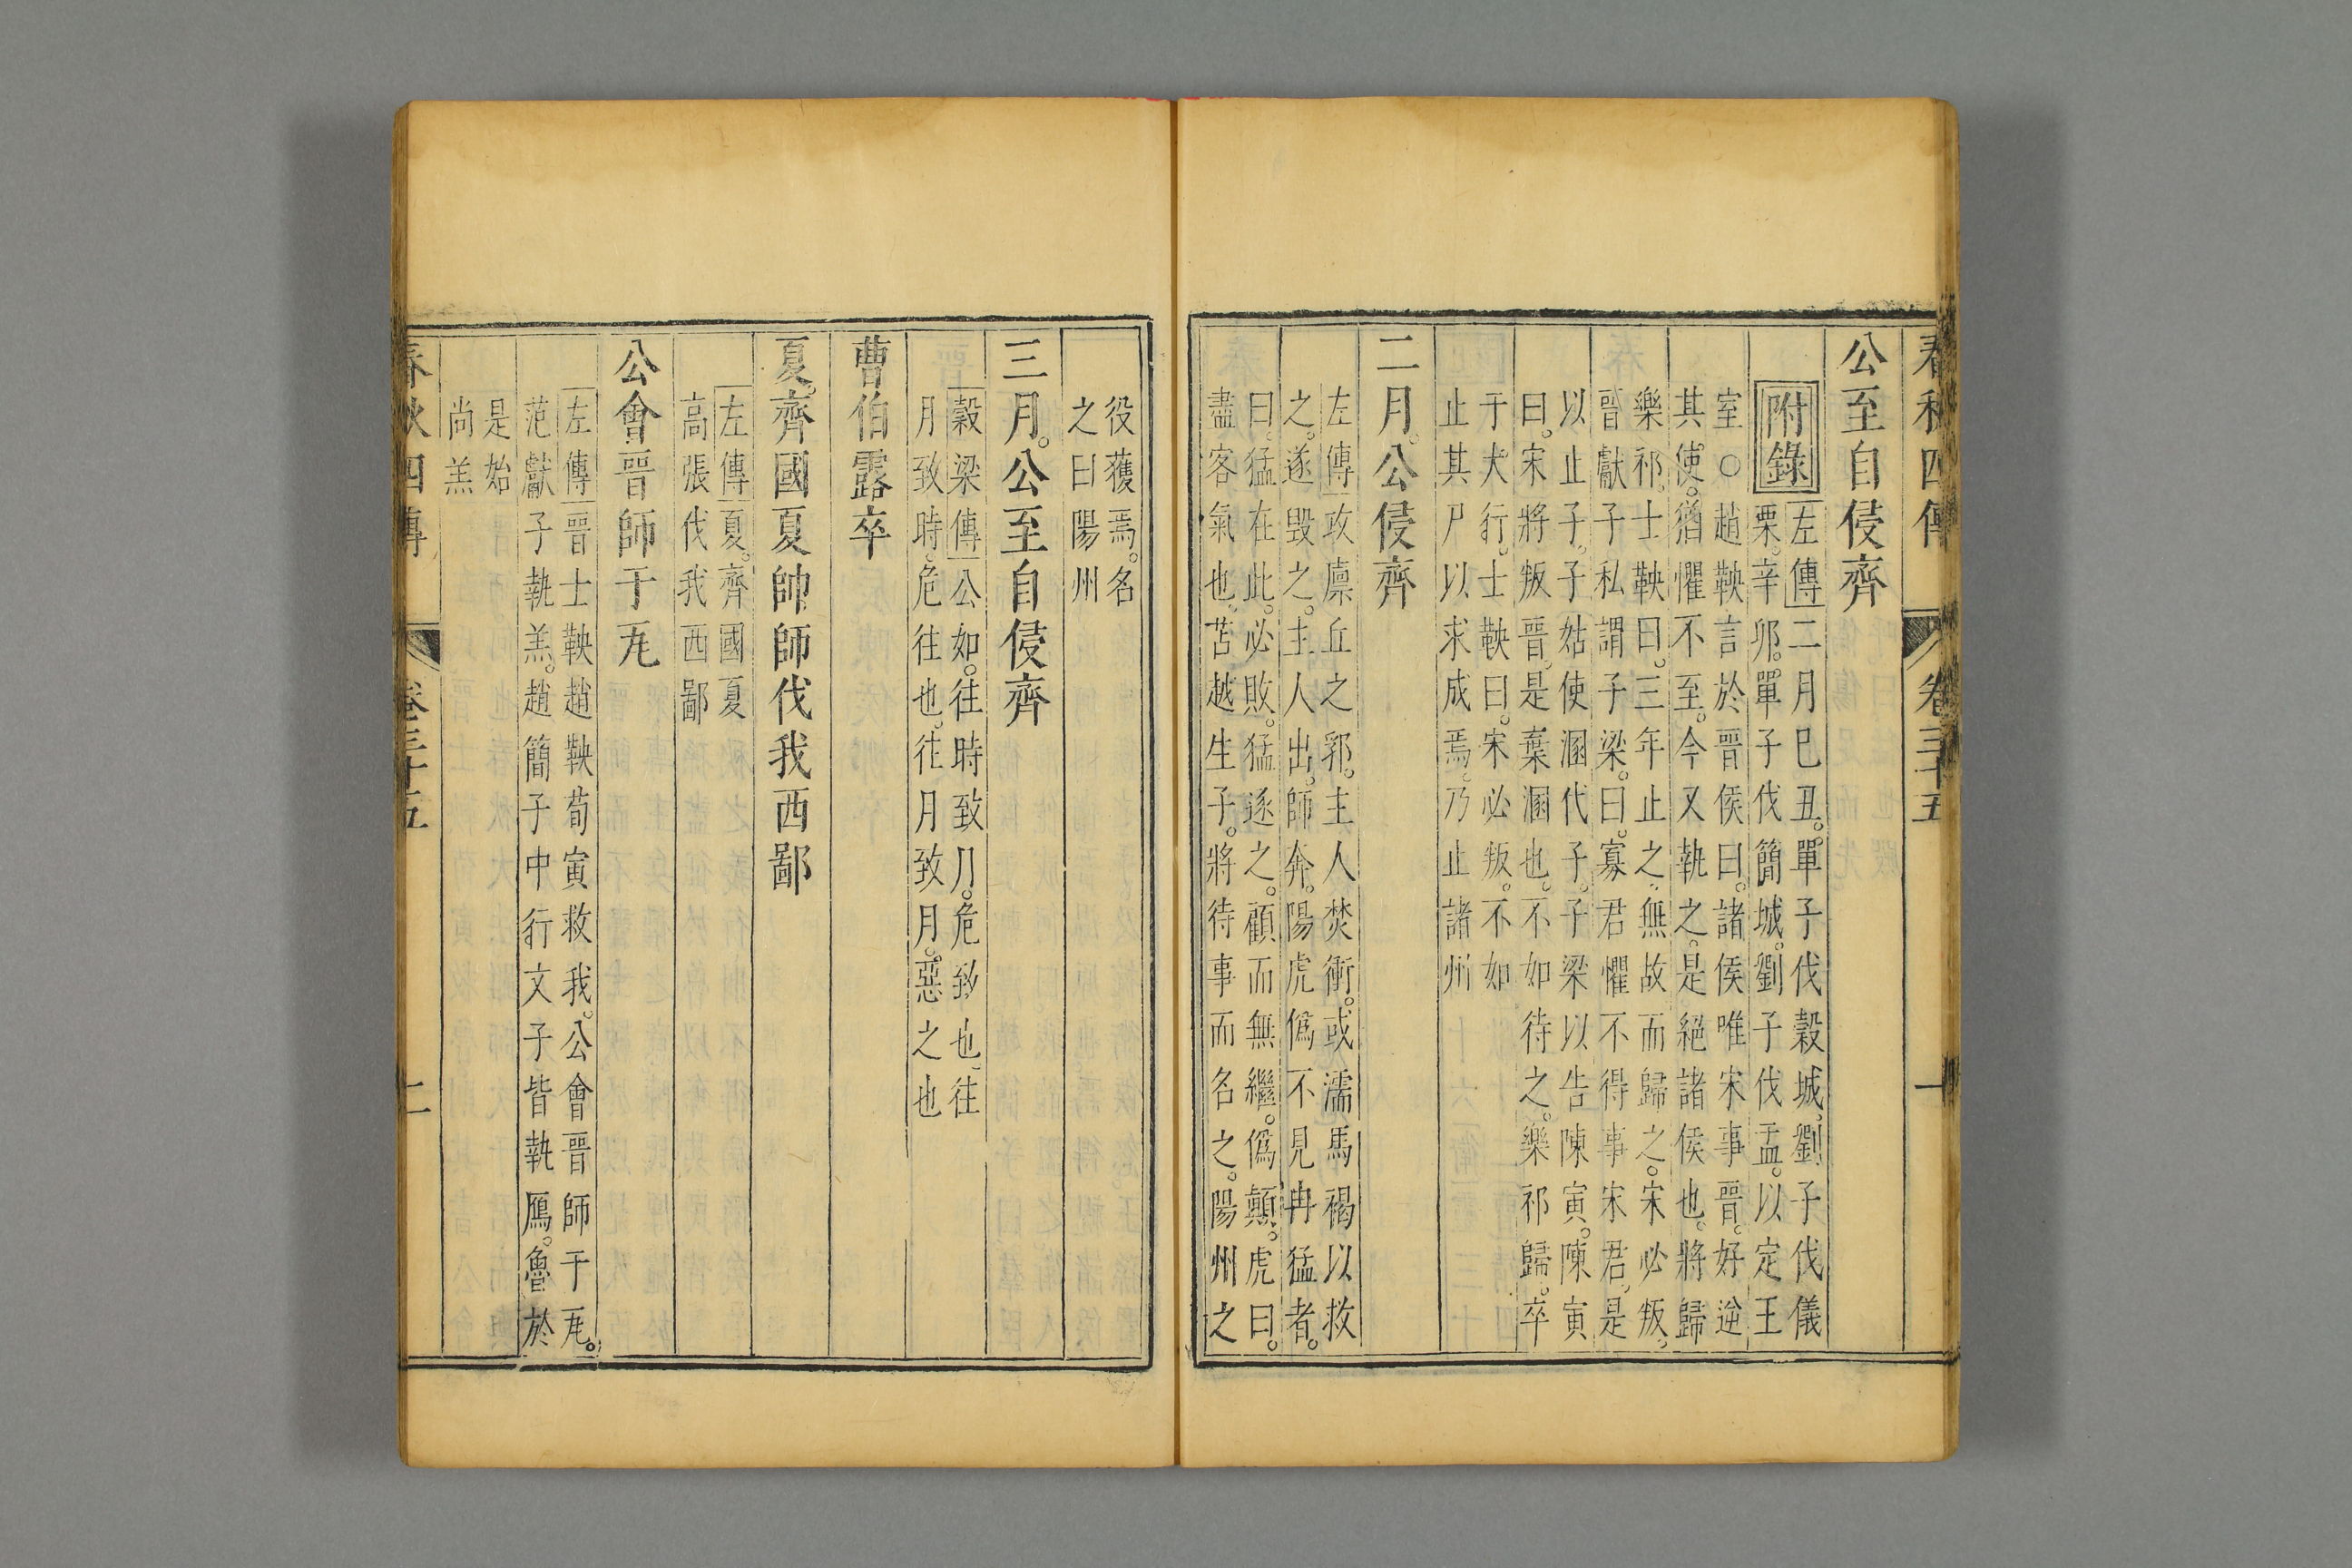 春秋四傳 卷三十五 一
公至自侵齊
附錄 左傳二月巳丑。單子伐穀城。劉子伐儀
栗。辛卯。單子伐簡城。劉子伐盂。以定王
室○趙鞅言於晉侯曰。諸侯唯宋事晉。好逆
其使。猶懼不至。今又執之。是絕諸侯也。將歸
樂祁。士鞅曰。三年止之。無故而歸之。宋必叛
晉獻子私謂子梁。曰。寡君懼不得事宋君。是
以止子。子姑使溷代子。子梁以告陳寅。陳寅
曰。宋將叛晉。是棄溷也。不如待之。樂祁歸。卒
于大行。士鞅曰。宋必叛。不如
止其尸以求成焉。乃止諸州
二月。公侵齊
左傳攻廩丘之郛。主人焚衝。或濡馬褐以救
之。遂毀之。主人出。師奔。陽虎僞不見冉猛者。
曰。猛在此。必敗。猛逐之。顧而無繼。僞顛。虎曰。
盡客氣也。苫越生子。將待事而名之。陽州之
役獲焉。名
之曰陽州
三月。公至自侵齊
穀梁傳公如。往時致月。危致也。往
月致時。危往也。往月致月。惡之也
曹伯露卒
夏。齊國夏帥師伐我西鄙
左傳夏。齊國夏
高張伐我西鄙
公會晉師于瓦
左傳晉士鞅趙鞅荀寅救我。公會晉師于瓦。
范獻子執羔。趙簡子中行文子皆執鴈。魯於
是始
尚羔
春秋四傳 卷三十五 二